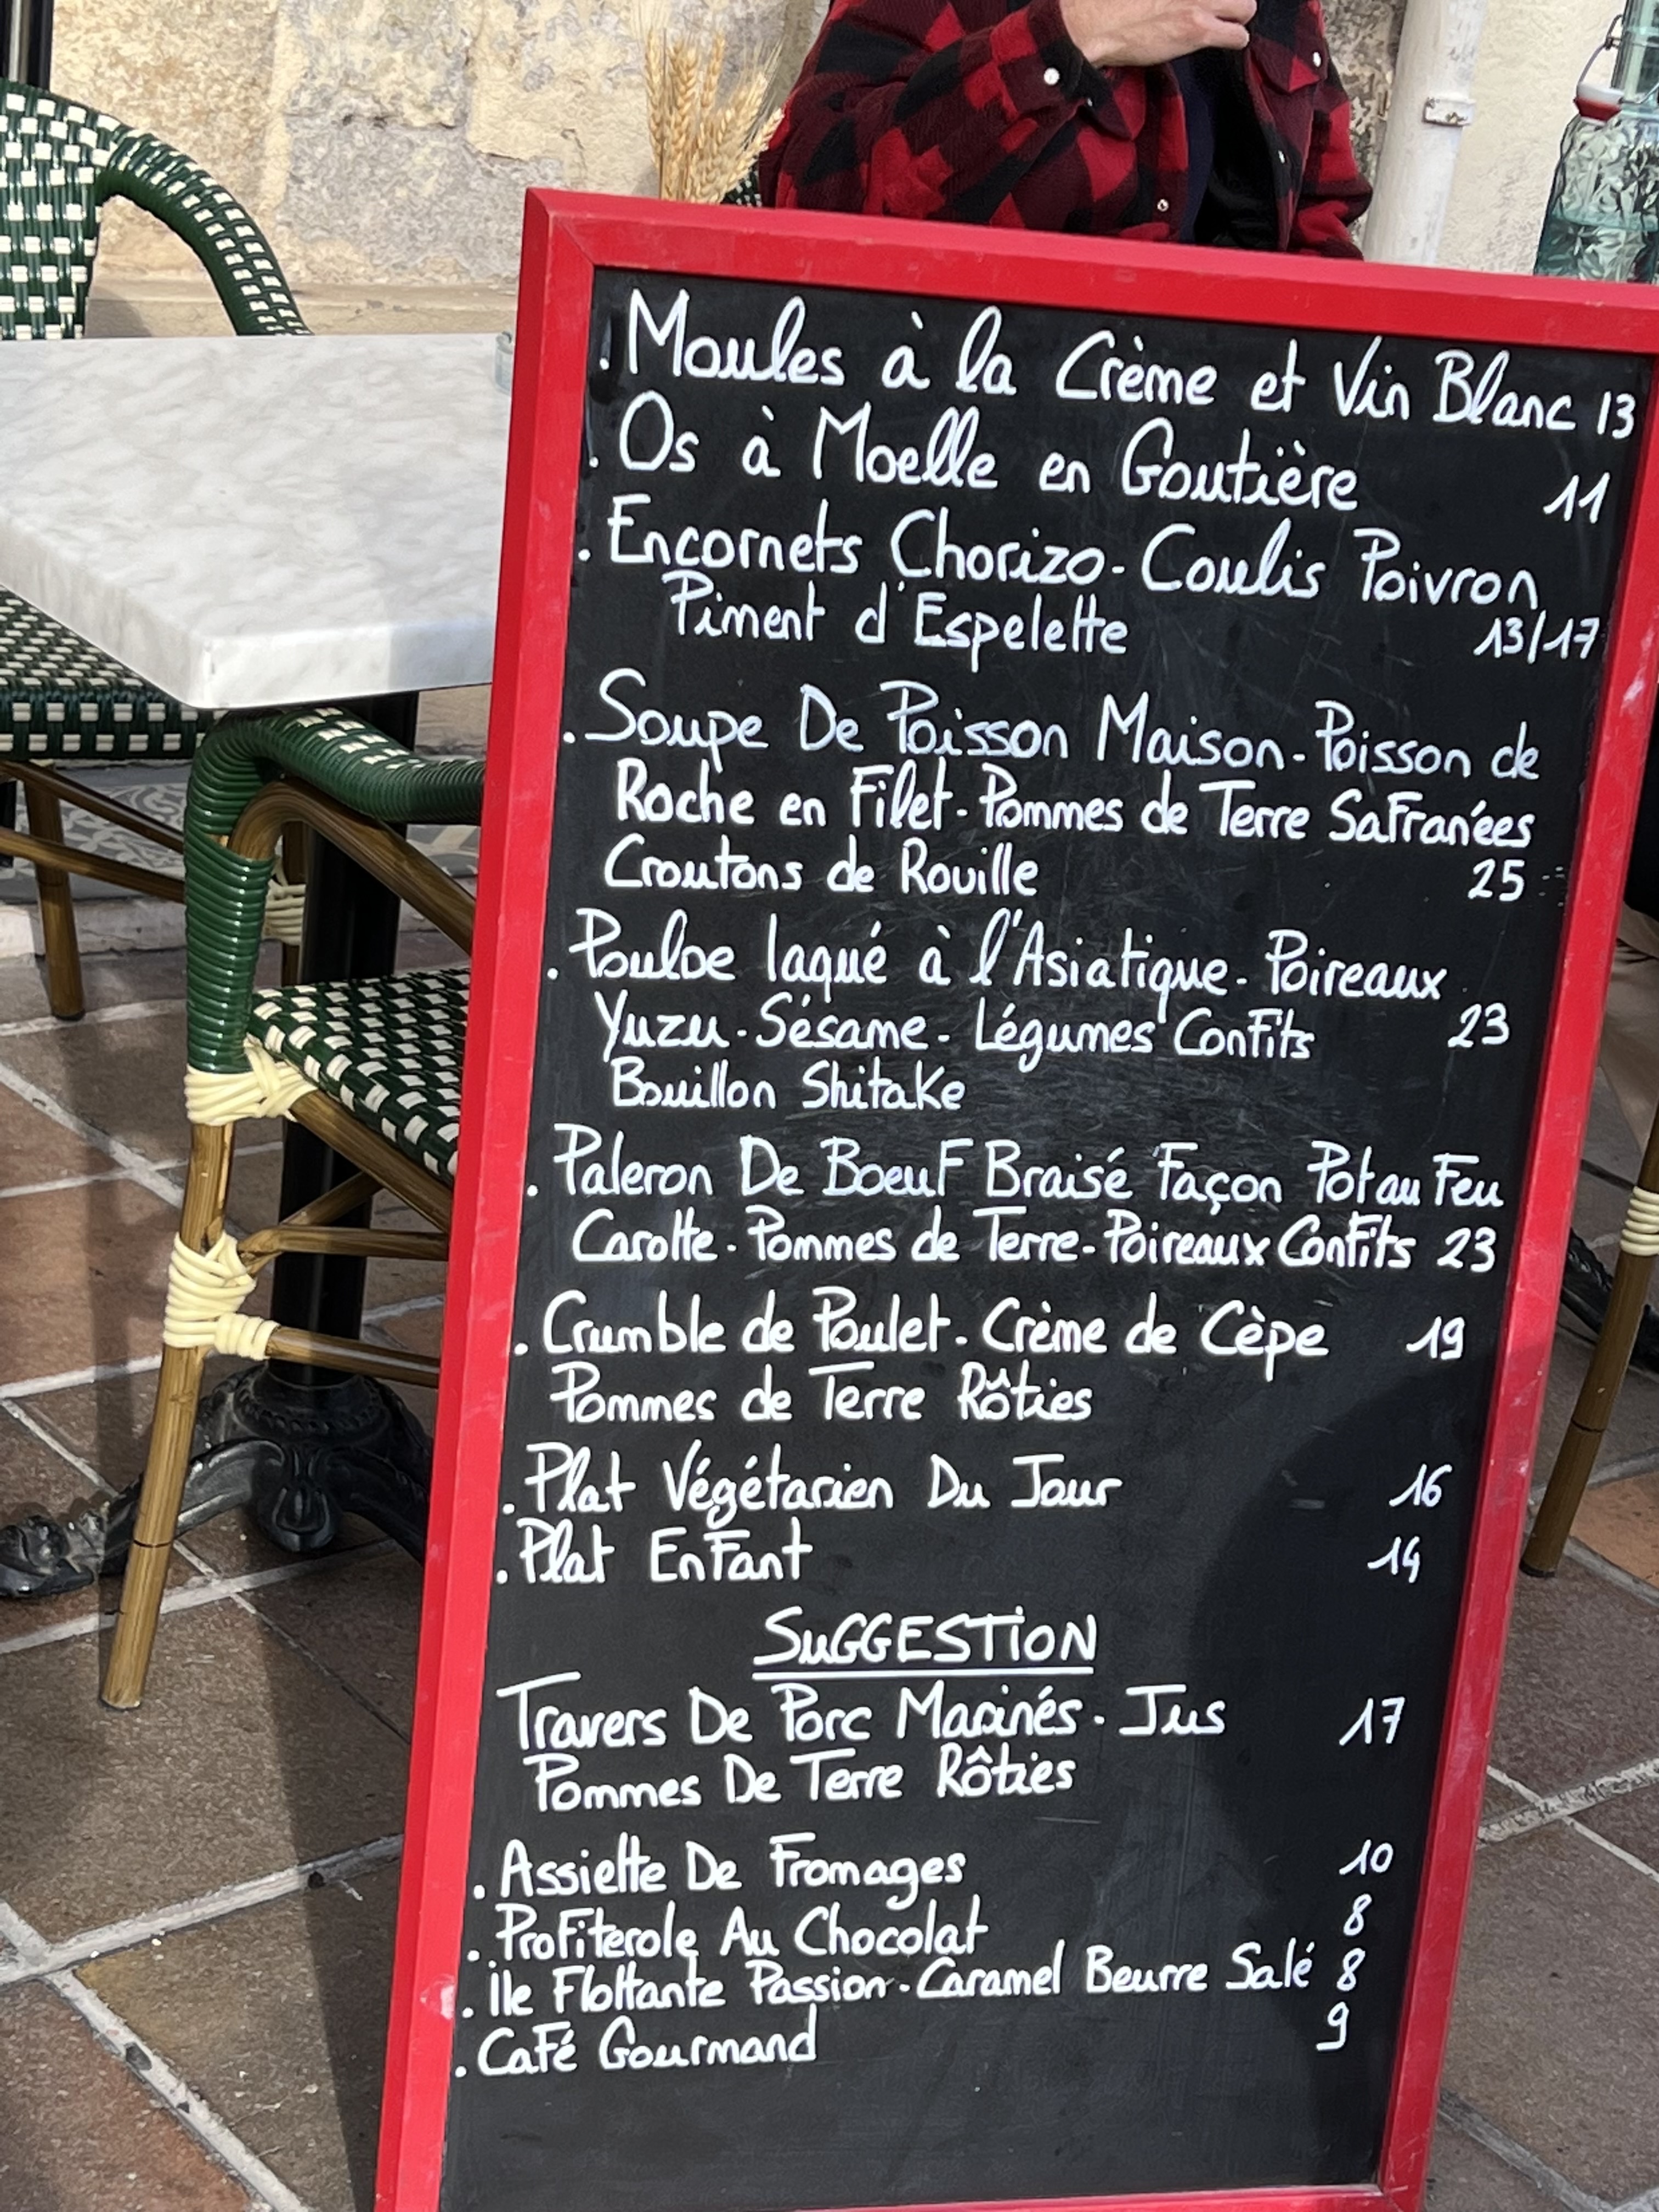 . Moules à la Crème et Vin Blanc 13
. Os à Moelle en Goutière 11
. Encornets Chorizo - Coulis Poivron
Piment d'Espelette 13/17
. Soupe De Poisson Maison - Poisson de
Roche en Filet - Pommes de Terre Safranées
Croutons de Rouille 25
. Poulpe laqué à l'Asiatique - Poireaux
Yuzu - Sésame - Légumes Confits 23
Bouillon Shitake
. Paleron De Boeuf Braisé Façon Pot au Feu
Carotte - Pommes de Terre - Poireaux Confits 23
. Crumble de Poulet - Crème de Cèpe 19
Pommes de Terre Rôties
. Plat Végétarien Du Jour 16
. Plat Enfant 14
SuGGESTiON
Travers De Porc Marinés - Jus 17
Pommes De Terre Rôties
. Assiette De Fromages 10
. Profiterole Au Chocolat 8
. île Flottante Passion - Caramel Beurre Salé 8
. Café Gourmand 9